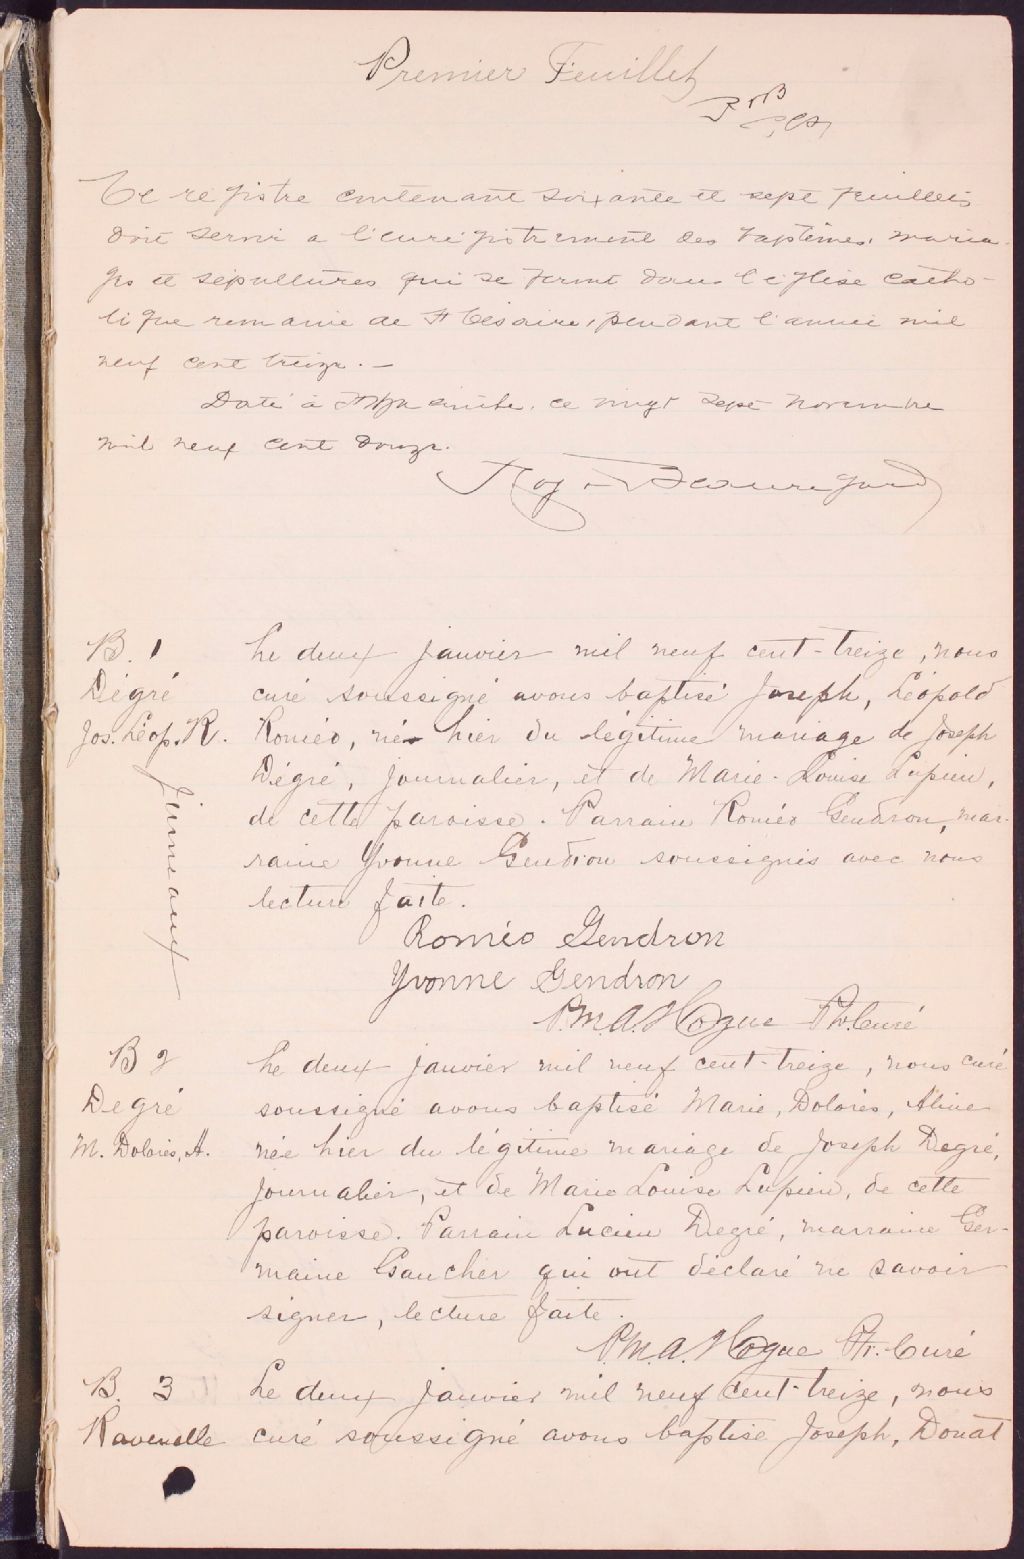 Premier Feuillet
Ce registre contenant soixante et sept feuillets
doit servir a l'enregistrement des baptêmes, maria-
ges et sépultures qui se feront dans l'église catho-
lique romaine de St Césaire, pendant l'année mil
neuf cent treize. —
Daté à St Hyacinthe, ce vingt sept novembre
mil neuf cent douze.
Roy Beauregard
B. 1
Dégré
Jos. Léop. R.
Jumeaux
Le deux janvier mil neuf cent-treize, nous
curé soussigné avons baptisé Joseph, Léopold
Roméo, né hier du légitime mariage de Joseph
Dégré, journalier, et de Marie-Louise Lupien,
de cette paroisse. Parrain Roméo Gendron, mar-
raine Yvonne Gendron soussignés avec nous
lecture faite.
Roméo Gendron
Yvonne Gendron
P.M.A. Hogue Ptr. Curé
B 2
Degré
M. Dolorès, A.
Le deux janvier mil neuf cent-treize, nous curé
soussigné avons baptisé Marie, Dolorès, Aline
née hier du légitime mariage de Joseph Degré,
journalier, et de Marie Louise Lupien, de cette
paroisse. Parrain Lucien Degré, marraine Ger-
maine Gaucher qui ont déclaré ne savoir
signer, lecture faite.
P.M.A. Hogue Ptr. Curé
B. 3
Ravenelle
Le deux janvier mil neuf cent-treize, nous
curé soussigné avons baptisé Joseph, Donat